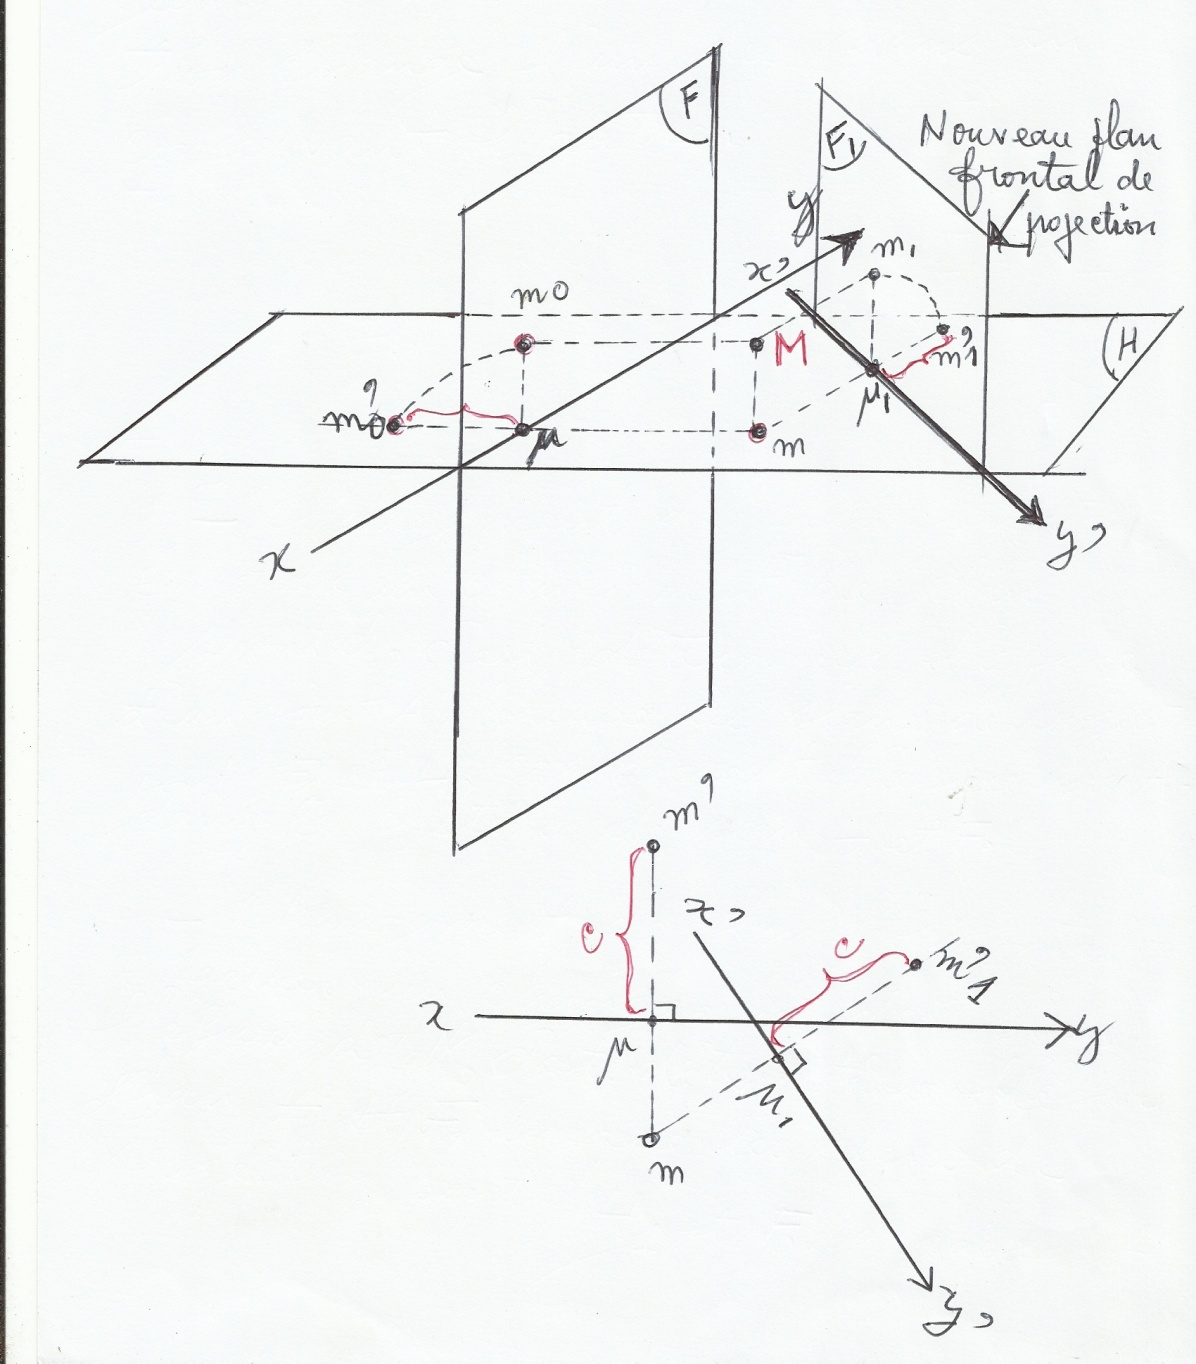 F
F1
Nouveau plan
frontal de
projection
y
x,
m1
m0
M
m'1
H
m'0
μ
m
μ1
x
y,
m'
x,
c
c
m'1
x
y
μ
μ1
m
y,